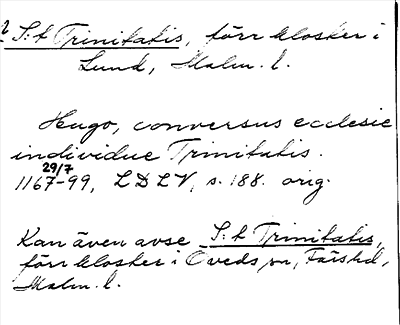 S:t Trinitatis, förr kloster i
Lund, Malm. l.
Hugo, conversus ecclesie
individue Trinitatis.
29/7
1167-99, LDLV, s. 188. orig.
Kan även avse S:t Trinitatis,
förr kloster i Öveds sn, Färs hd,
Malm. l.